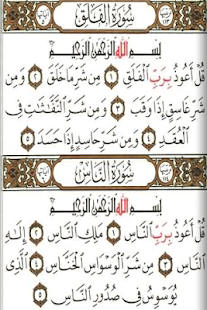 سُورَةُ الفَلَقِ
بِسْمِ اللَّهِ الرَّحْمَٰنِ الرَّحِيمِ
قُلْ أَعُوذُ بِرَبِّ الْفَلَقِ ۝١ مِن شَرِّ مَا خَلَقَ ۝٢ وَمِن
شَرِّ غَاسِقٍ إِذَا وَقَبَ ۝٣ وَمِن شَرِّ النَّفَّٰثَٰتِ فِى
الْعُقَدِ ۝٤ وَمِن شَرِّ حَاسِدٍ إِذَا حَسَدَ ۝٥
سُورَةُ النَّاسِ
بِسْمِ اللَّهِ الرَّحْمَٰنِ الرَّحِيمِ
قُلْ أَعُوذُ بِرَبِّ النَّاسِ ۝١ مَلِكِ النَّاسِ ۝٢ إِلَٰهِ
النَّاسِ ۝٣ مِن شَرِّ الْوَسْوَاسِ الْخَنَّاسِ ۝٤ الَّذِى
يُوَسْوِسُ فِى صُدُورِ النَّاسِ ۝٥